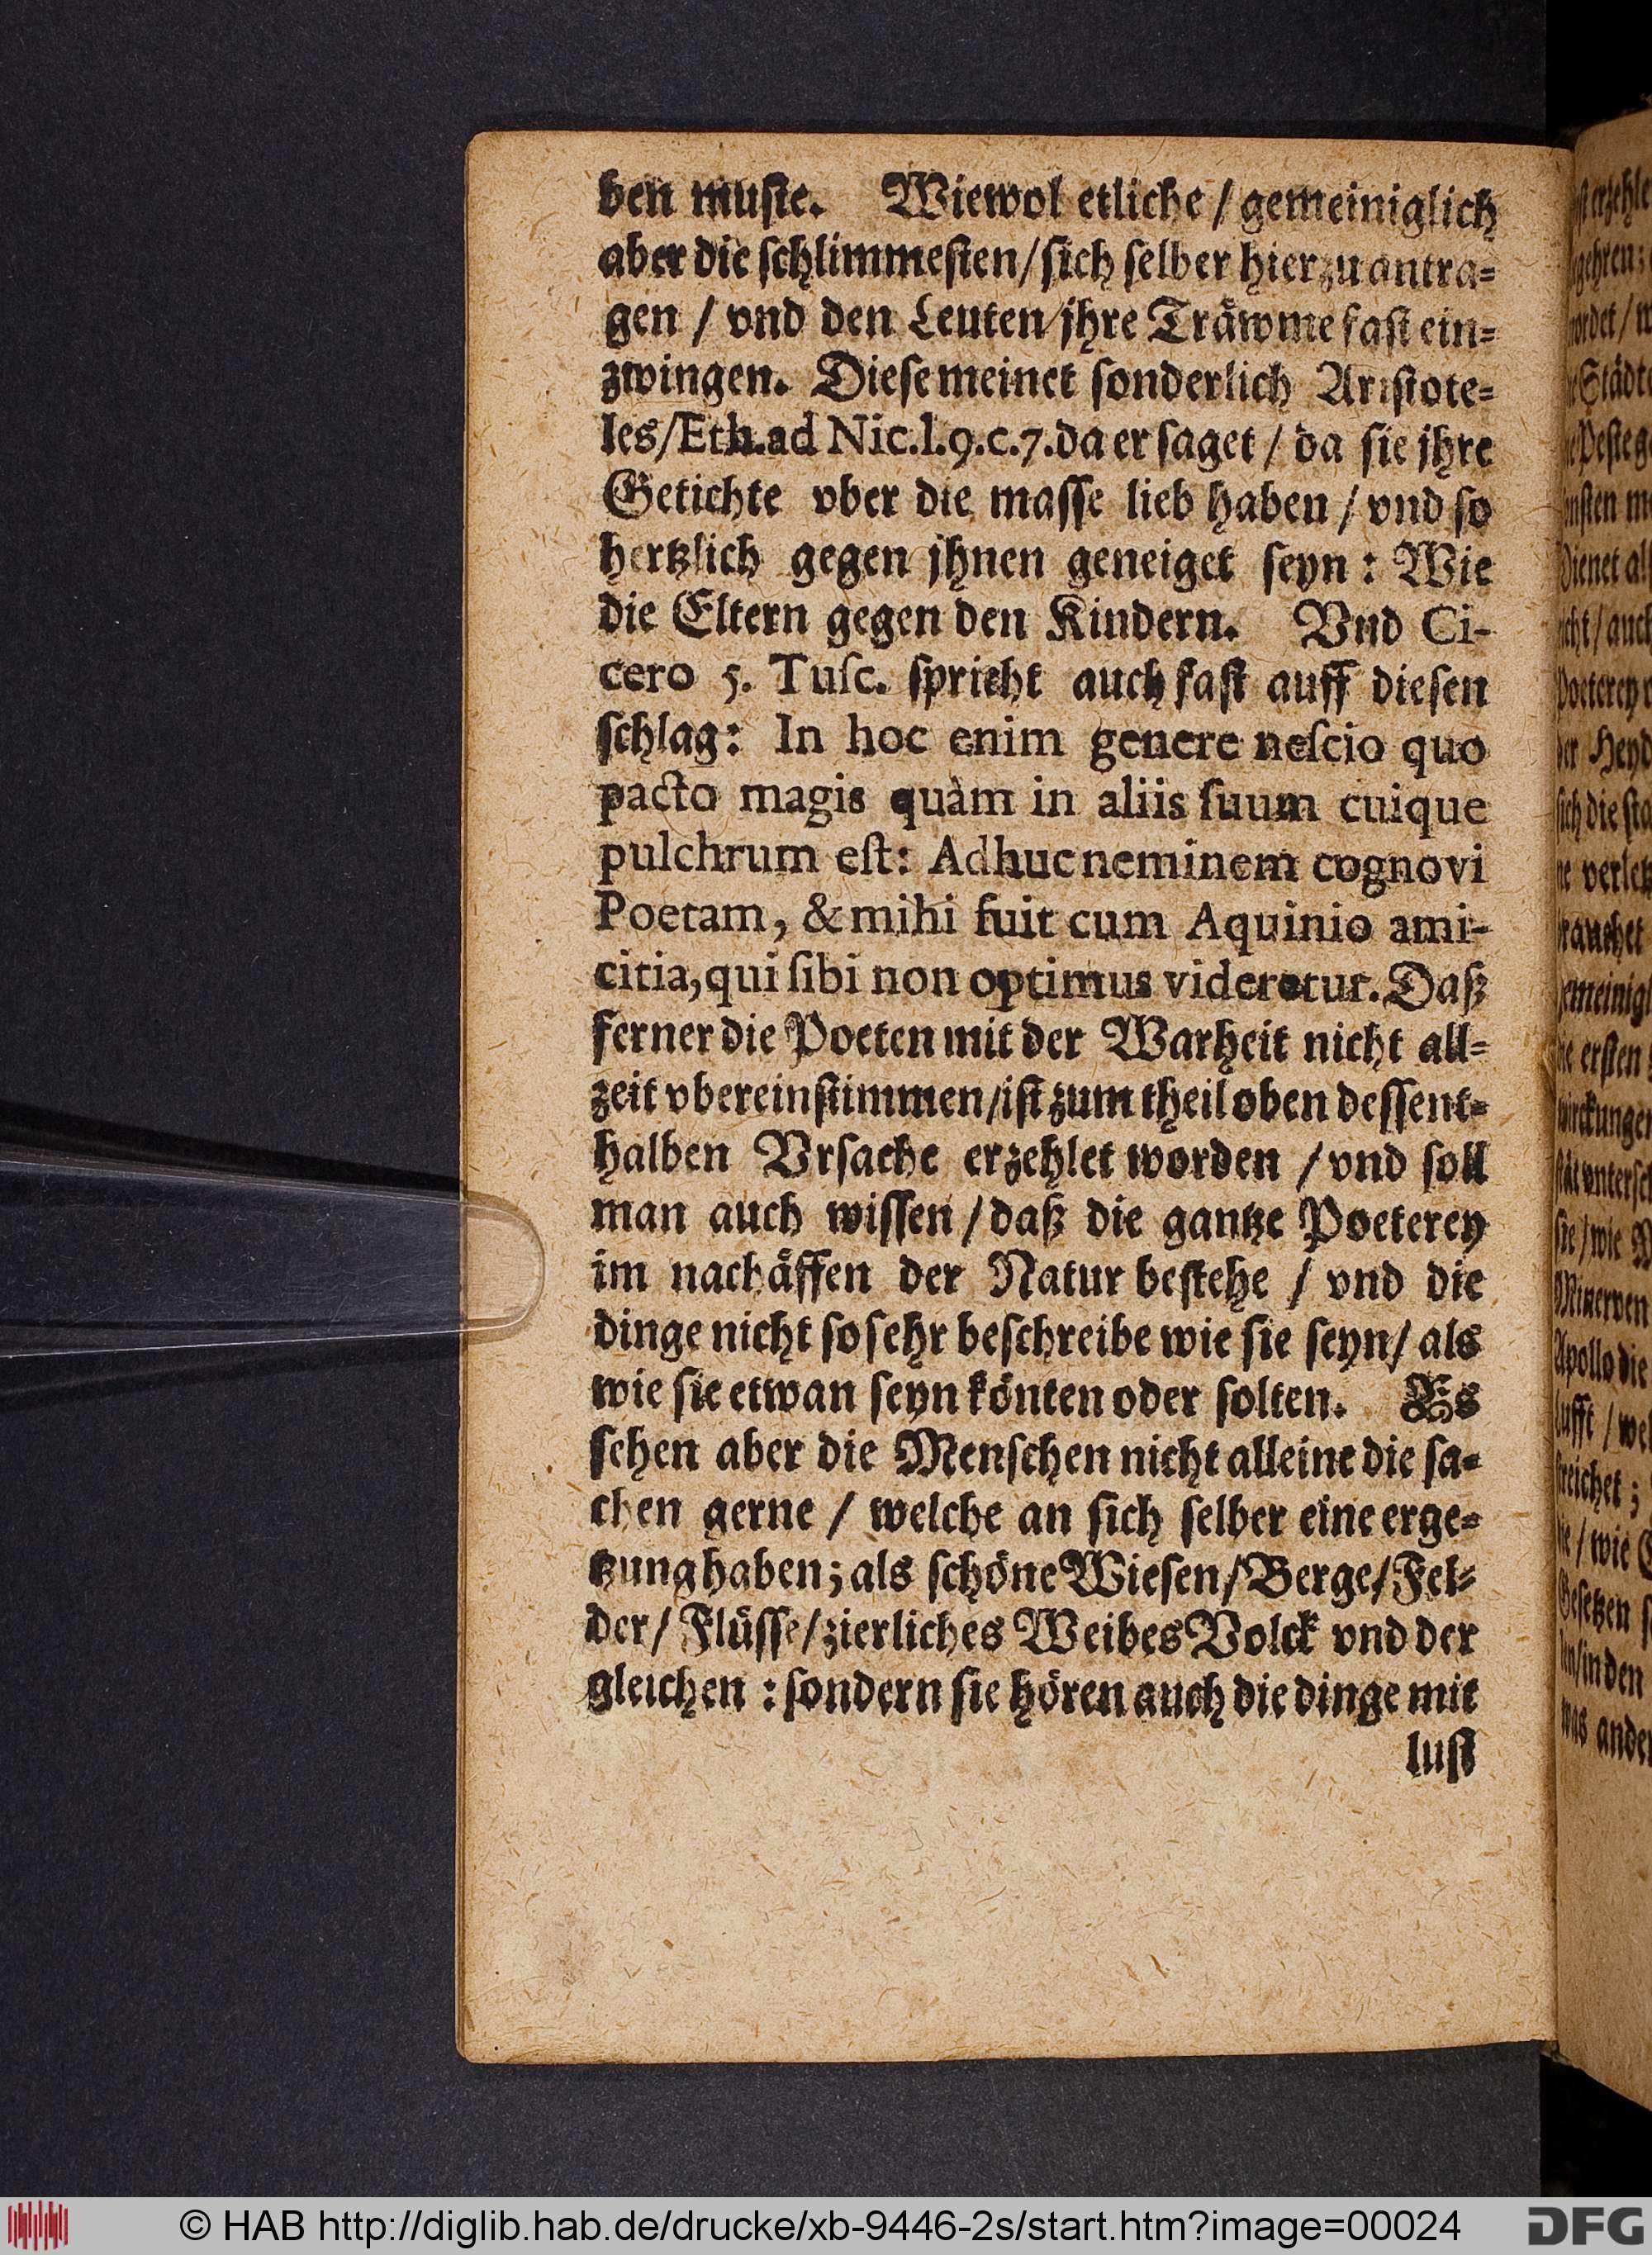 ben muſte. Wiewol etliche / gemeiniglich
aber die ſchlimmeſten / ſich ſelber hierzu antra⸗
gen / vnd den Leuten jhre Träwme faſt ein⸗
zwingen. Dieſe meinet ſonderlich Ariſtote⸗
les / Eth. ad Nic. l. 9. c. 7. da er ſaget / da ſie jhre
Getichte vber die maſſe lieb haben / vnd ſo
hertzlich gegen jhnen geneiget ſeyn : Wie
die Eltern gegen den Kindern. Vnd Ci-
cero 5. Tuſc. ſpricht auch faſt auff dieſen
ſchlag: In hoc enim genere neſcio quo
pacto magis quàm in aliis ſuum cuique
pulchrum eſt: Adhuc neminem cognovi
Poetam, & mihi fuit cum Aquinio ami-
citia, qui ſibi non optimus videretur. Daß
ferner die Poeten mit der Warheit nicht all⸗
zeit vbereinſtimmen / iſt zum theil oben deſſent⸗
halben Vrſache erzehlet worden / vnd ſoll
man auch wiſſen / daß die gantze Poeterey
im nachäffen der Natur beſtehe / vnd die
dinge nicht ſo ſehr beſchreibe wie ſie ſeyn / als
wie ſie etwan ſeyn könten oder ſolten. Es
ſehen aber die Menſchen nicht alleine die ſa⸗
chen gerne / welche an ſich ſelber eine erge⸗
tzung haben; als ſchöne Wieſen / Berge / Fel⸗
der / Flüſſe / zierliches Weibes Volck vnd der
gleichen : ſondern ſie hören auch die dinge mit
luſt
© HAB http://diglib.hab.de/drucke/xb-9446-2s/start.htm?image=00024
DFG